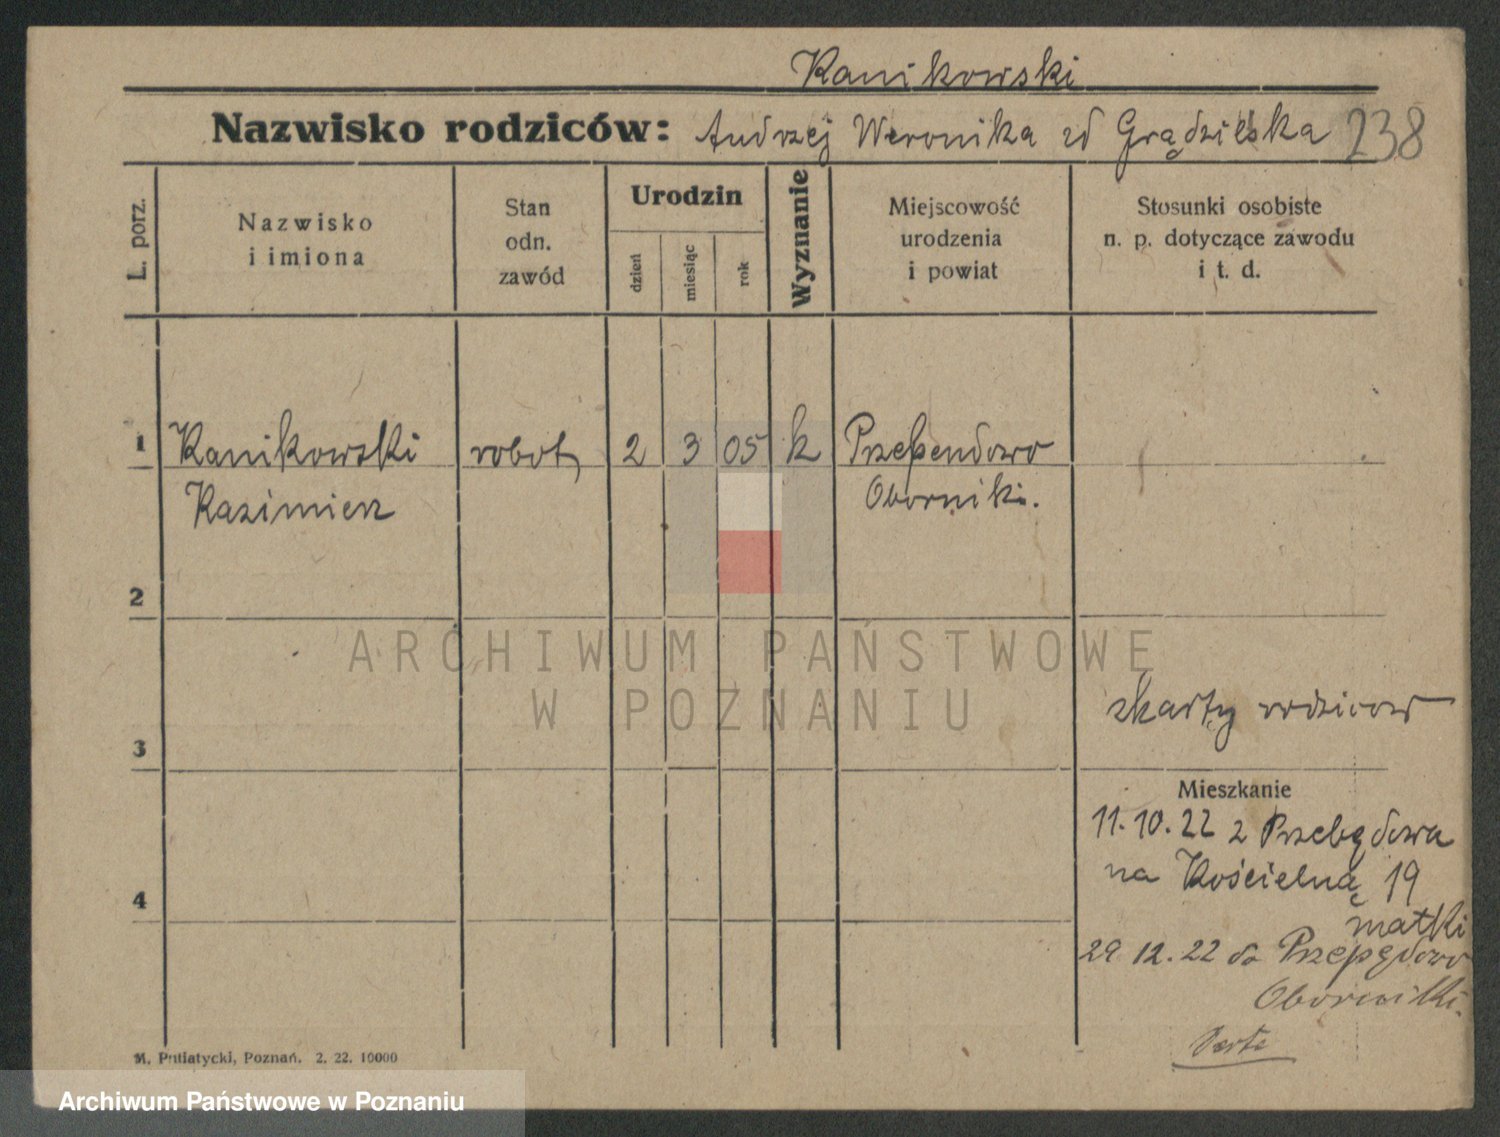 Kanikowski
Nazwisko rodziców: Andrzej Weronika zd Grądzielska 238
L. porz.
Nazwisko
i imiona
Stan
odn.
zawód
Urodzin
dzień
miesiąc
rok
Wyznanie
Miejscowość
urodzenia
i powiat
Stosunki osobiste
n. p. dotyczące zawodu
i t. d.
1 Kanikowski robot, 2 3 05 k Przependowo
Kazimierz Oborniki.
2
ARCHIWUM PAŃSTWOWE
W POZNANIU
z karty rodziców
3
Mieszkanie
11.10.22 z Przebędowa
na Kościelną 19
4
matki
29 12.22 do Przepędowo
Oborniki.
Verte
M. Putiatycki, Poznań. 2. 22. 10000
Archiwum Państwowe w Poznaniu